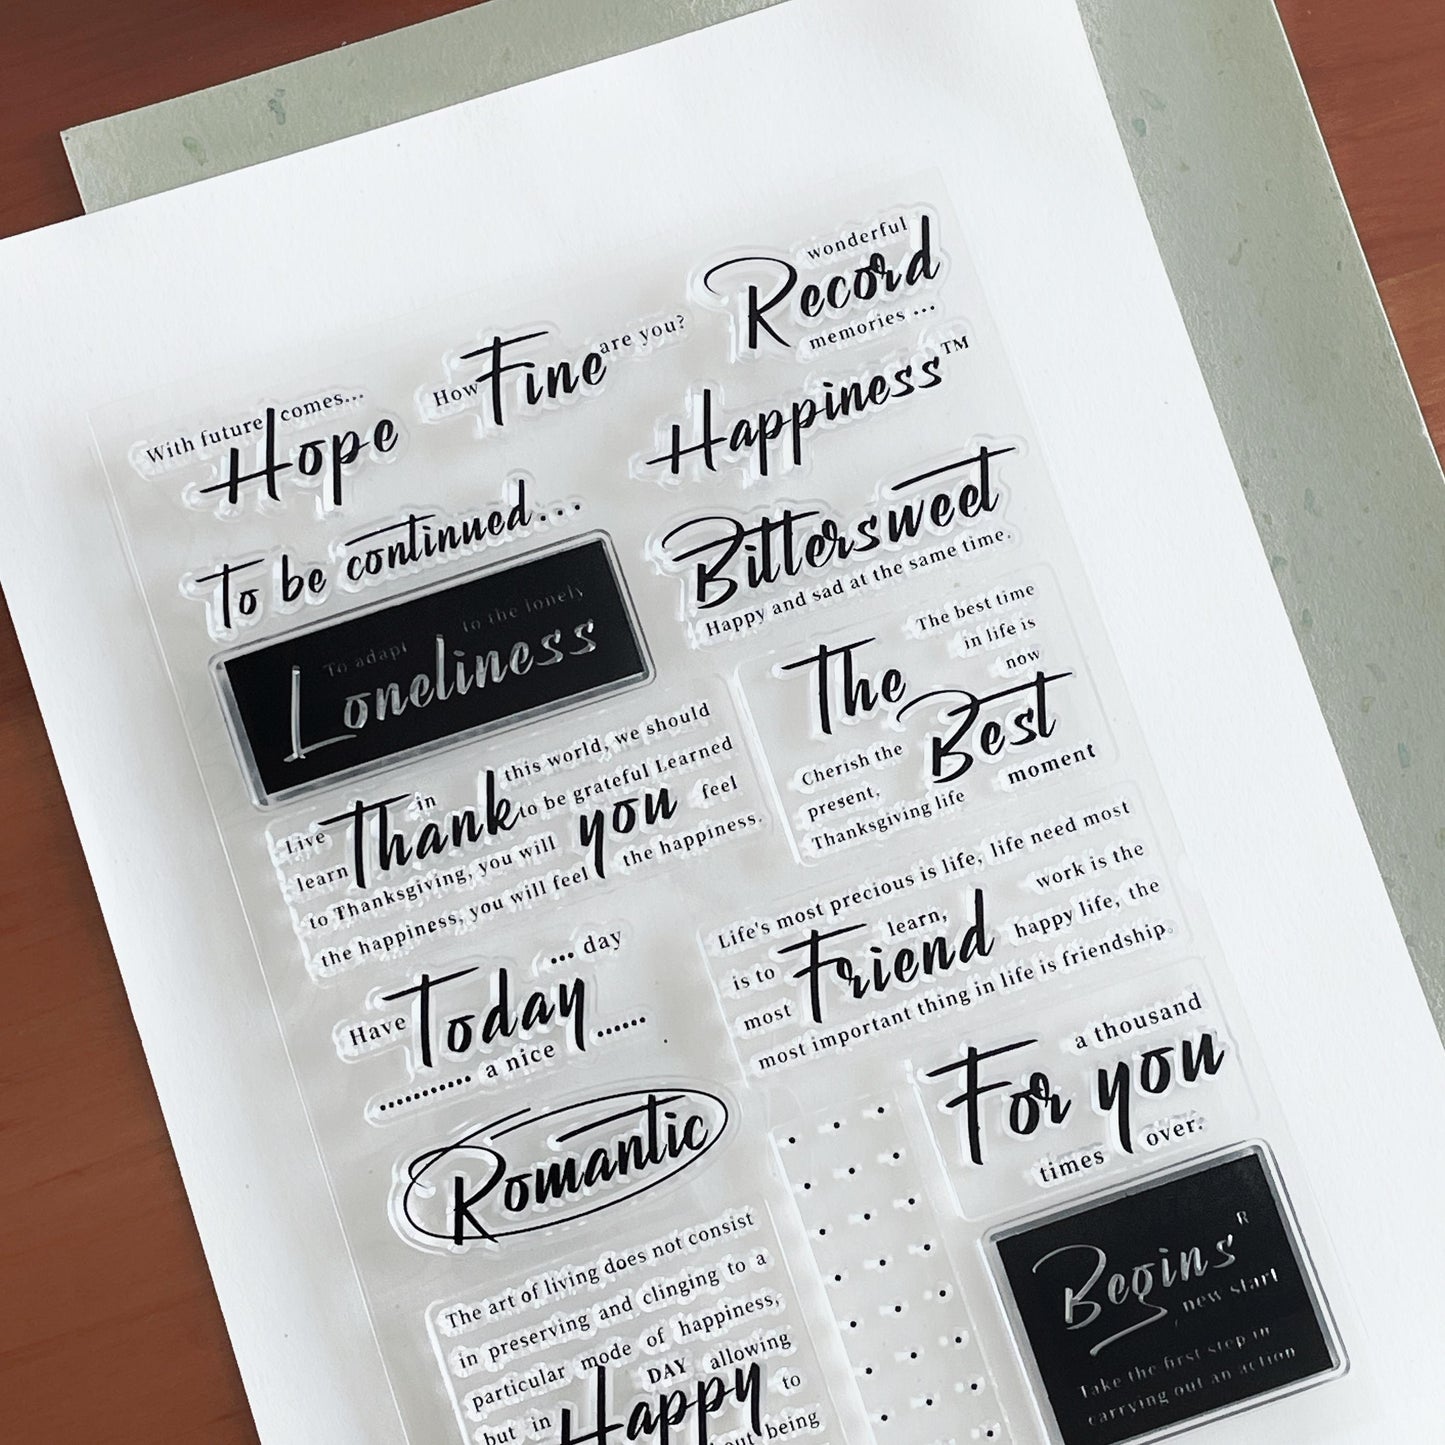 wonderful
Record
memories ...
How Fine are you?
With future comes...
Hope
Happiness™
To be continued...
Bittersweet
Happy and sad at the same time.
To adapt to the lonely
Loneliness
The best time
in life is
now
The
Best
Cherish the
present,
moment
Thanksgiving life
this world, we should
Live in
Thank to be grateful Learned
learn you feel
to Thanksgiving, you will
the happiness, you will feel the happiness.
Life's most precious is life, life need most
is to learn, work is the
most Friend happy life, the
most important thing in life is friendship.
... day
Have Today ......
........... a nice
a thousand
For you
times over.
Romantic
The art of living does not consist
in preserving and clinging to a
particular mode of happiness,
DAY allowing
but in Happy to
out being
Begins R
new start
Take the first step in
carrying out an action